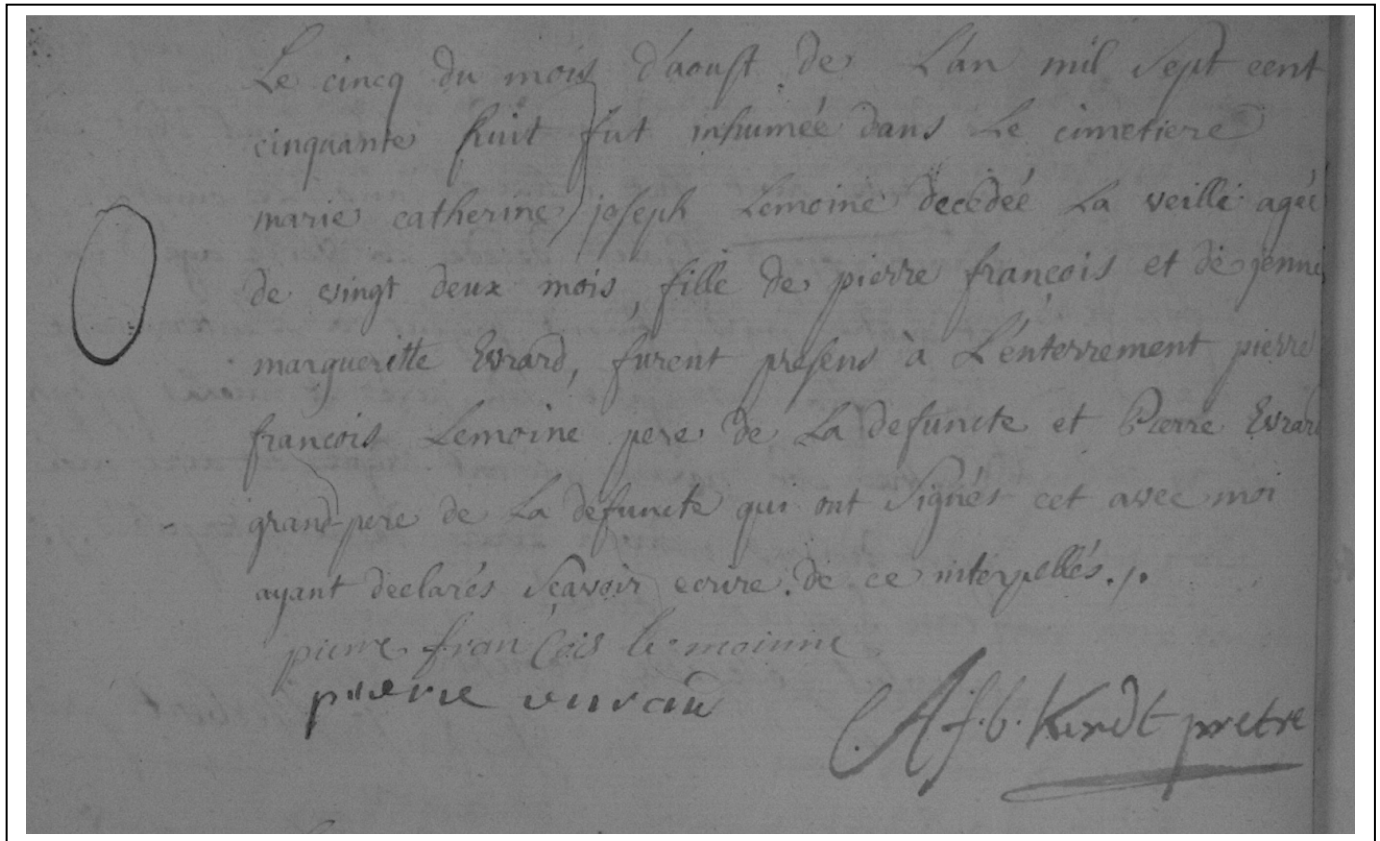 Le cincq du mois d'aoust de L'an mil sept cent
cinquante huit fut inhumée dans Le cimetiere
marie catherine joseph Lemoine decedée La veille agée
de vingt deux mois, fille de pierre françois et de jenne
margueritte Evrard, furent presens à L'enterrement pierre
françois Lemoine pere de La defuncte et Pierre Evrard
grand-pere de La defuncte qui ont signés cet avec moi
ayant declarés sçavoir ecrire de ce interpellés./.
pierre françois le moinne
pierre
A.f.b. pretre